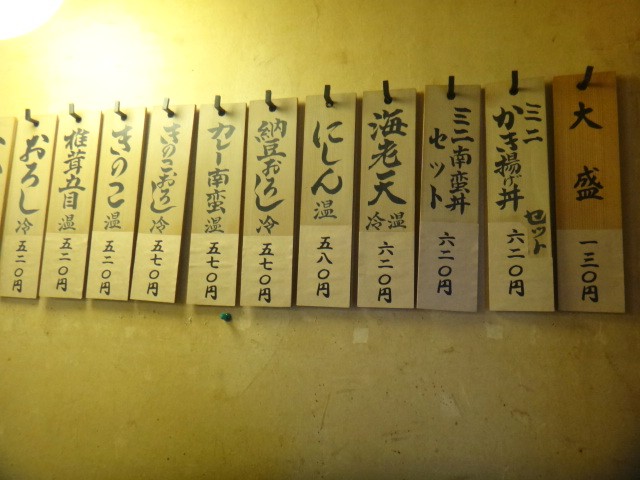 大盛 一三〇円
ミニかき揚げ丼セット 六二〇円
ミニ南蛮丼セット 六二〇円
海老天 温冷 六二〇円
にしん 温 五八〇円
納豆おろし 冷 五七〇円
カレー南蛮 温 五七〇円
きのこおろし 冷 五七〇円
きのこ 温 五二〇円
椎茸五目 温 五二〇円
おろし 冷 五二〇円